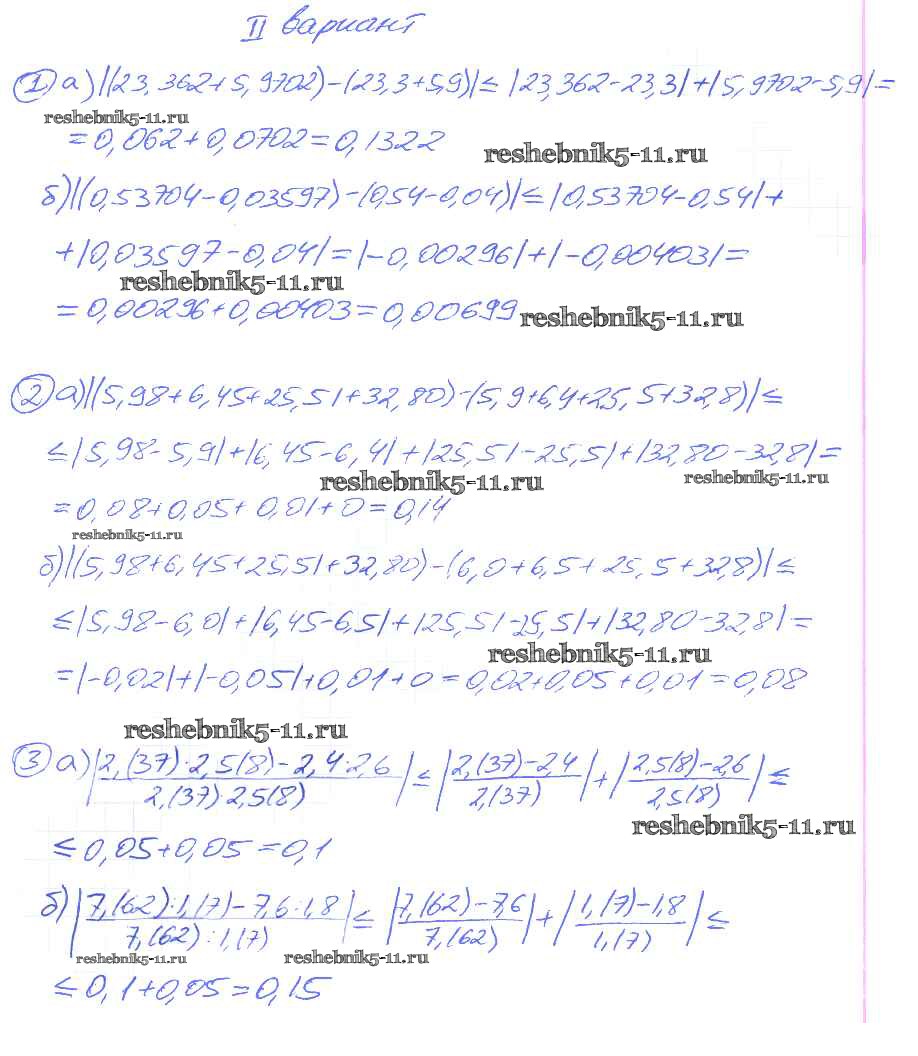 II вариант
① а) |(23,362+5,9702)-(23,3+5,9)| ≤ |23,362-23,3|+|5,9702-5,9|=
reshebnik5-11.ru
=0,062+0,0702=0,1322
reshebnik5-11.ru
б) |(0,53704-0,03597)-(0,54-0,04)| ≤ |0,53704-0,54|+
+|0,03597-0,04|=|-0,00296|+|-0,00403|=
reshebnik5-11.ru
=0,00296+0,00403=0,00699
reshebnik5-11.ru
② а) |(5,98+6,45+25,51+32,80)-(5,9+6,4+25,5+32,8)| ≤
≤ |5,98-5,9|+|6,45-6,4|+|25,51-25,5|+|32,80-32,8|=
reshebnik5-11.ru
reshebnik5-11.ru
=0,08+0,05+0,01+0=0,14
reshebnik5-11.ru
б) |(5,98+6,45+25,51+32,80)-(6,0+6,5+25,5+32,8)| ≤
≤ |5,98-6,0|+|6,45-6,5|+|25,51-25,5|+|32,80-32,8|=
reshebnik5-11.ru
=|-0,02|+|-0,05|+0,01+0=0,02+0,05+0,01=0,08
reshebnik5-11.ru
③ а) |(2,(37)·2,5(8)-2,4·2,6)/(2,(37)·2,5(8))| ≤ |(2,(37)-2,4)/(2,(37))|+|(2,5(8)-2,6)/(2,5(8))| ≤
reshebnik5-11.ru
≤ 0,05+0,05=0,1
б) |(7,(62):1,(7)-7,6:1,8)/(7,(62):1,(7))| ≤ |(7,(62)-7,6)/(7,(62))|+|(1,(7)-1,8)/(1,(7))| ≤
reshebnik5-11.ru
reshebnik5-11.ru
≤ 0,1+0,05=0,15